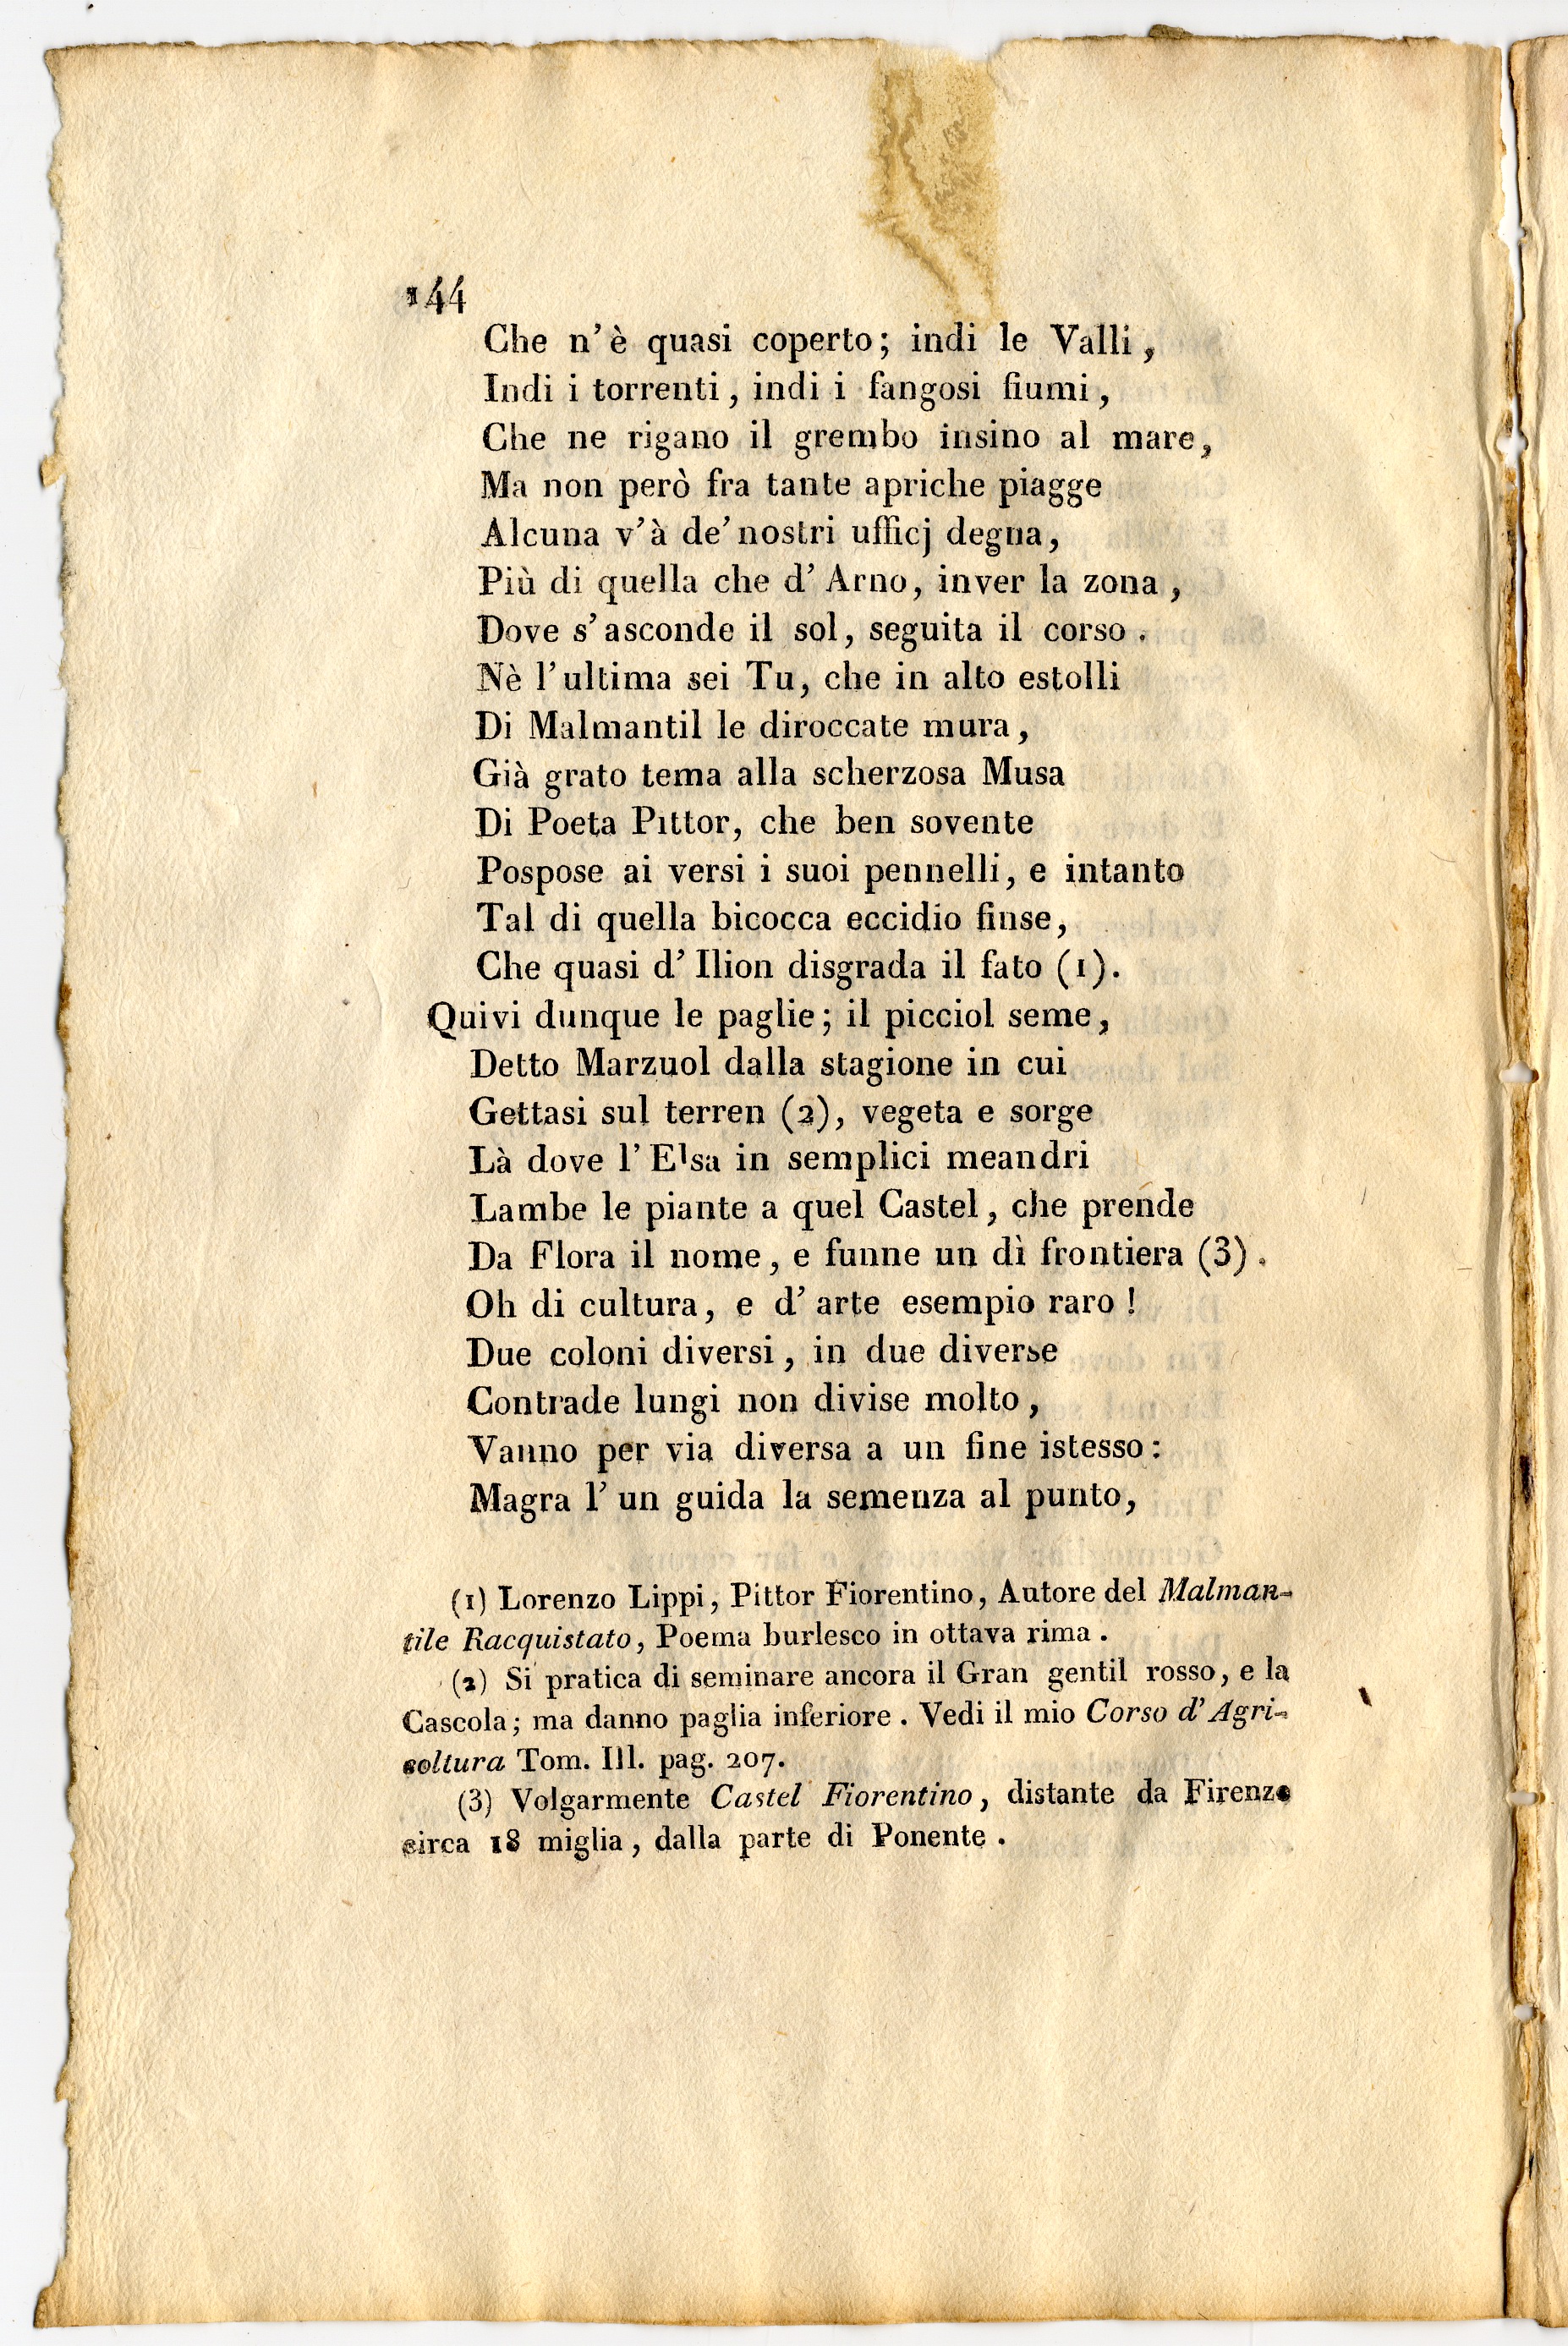 144
Che n'è quasi coperto; indi le Valli,
Indi i torrenti, indi i fangosi fiumi,
Che ne rigano il grembo insino al mare,
Ma non però fra tante apriche piagge
Alcuna v'à de' nostri ufficj degna,
Più di quella che d'Arno, inver la zona,
Dove s'asconde il sol, seguita il corso.
Nè l'ultima sei Tu, che in alto estolli
Di Malmantil le diroccate mura,
Già grato tema alla scherzosa Musa
Di Poeta Pittor, che ben sovente
Pospose ai versi i suoi pennelli, e intanto
Tal di quella bicocca eccidio finse,
Che quasi d'Ilion disgrada il fato (1).
Quivi dunque le paglie; il picciol seme,
Detto Marzuol dalla stagione in cui
Gettasi sul terren (2), vegeta e sorge
Là dove l'Elsa in semplici meandri
Lambe le piante a quel Castel, che prende
Da Flora il nome, e funne un dì frontiera (3).
Oh di cultura, e d'arte esempio raro!
Due coloni diversi, in due diverse
Contrade lungi non divise molto,
Vanno per via diversa a un fine istesso:
Magra l'un guida la semenza al punto,
(1) Lorenzo Lippi, Pittor Fiorentino, Autore del Malman-
tile Racquistato, Poema burlesco in ottava rima.
(2) Si pratica di seminare ancora il Gran gentil rosso, e la
Cascola; ma danno paglia inferiore. Vedi il mio Corso d'Agri-
coltura Tom. III. pag. 207.
(3) Volgarmente Castel Fiorentino, distante da Firenze
circa 18 miglia, dalla parte di Ponente.